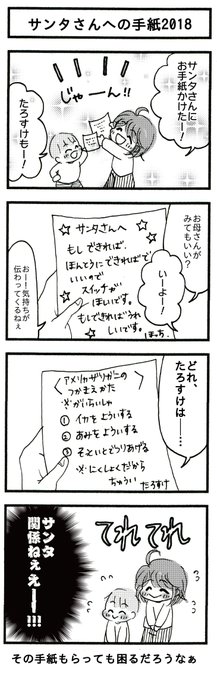 サンタさんへの手紙2018
サンタさんに
お手紙かけたー！
じゃーん!!
たろすけもー！
お母さんが
みてもいい？
いーよー！
サンタさんへ
もしできれば、
ほんとうにできればで
いいので
スイッチが
ほしいです。
もしできればうれ
しいです。
おー！気持ちが
伝わってくるねぇ
どれ、
たろすけは――…
アメリカザリガニの
つかまえかた
①イカをよういする
②あみをよういする
③そぉいとどりあげる
※にくしょくだから
ちゅうい
たろすけ
てれてれ
サンタ
関係ねぇえーー!!!
その手紙もらっても困るだろうなぁ